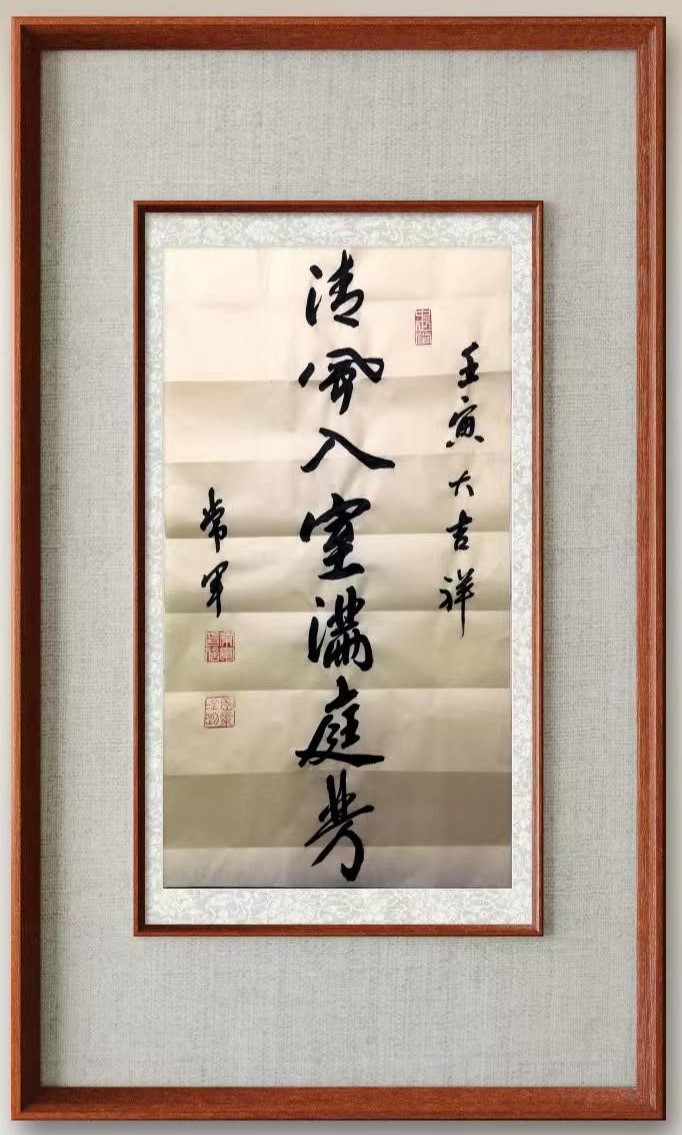 壬寅大吉祥
清风入室满庭芳
常军